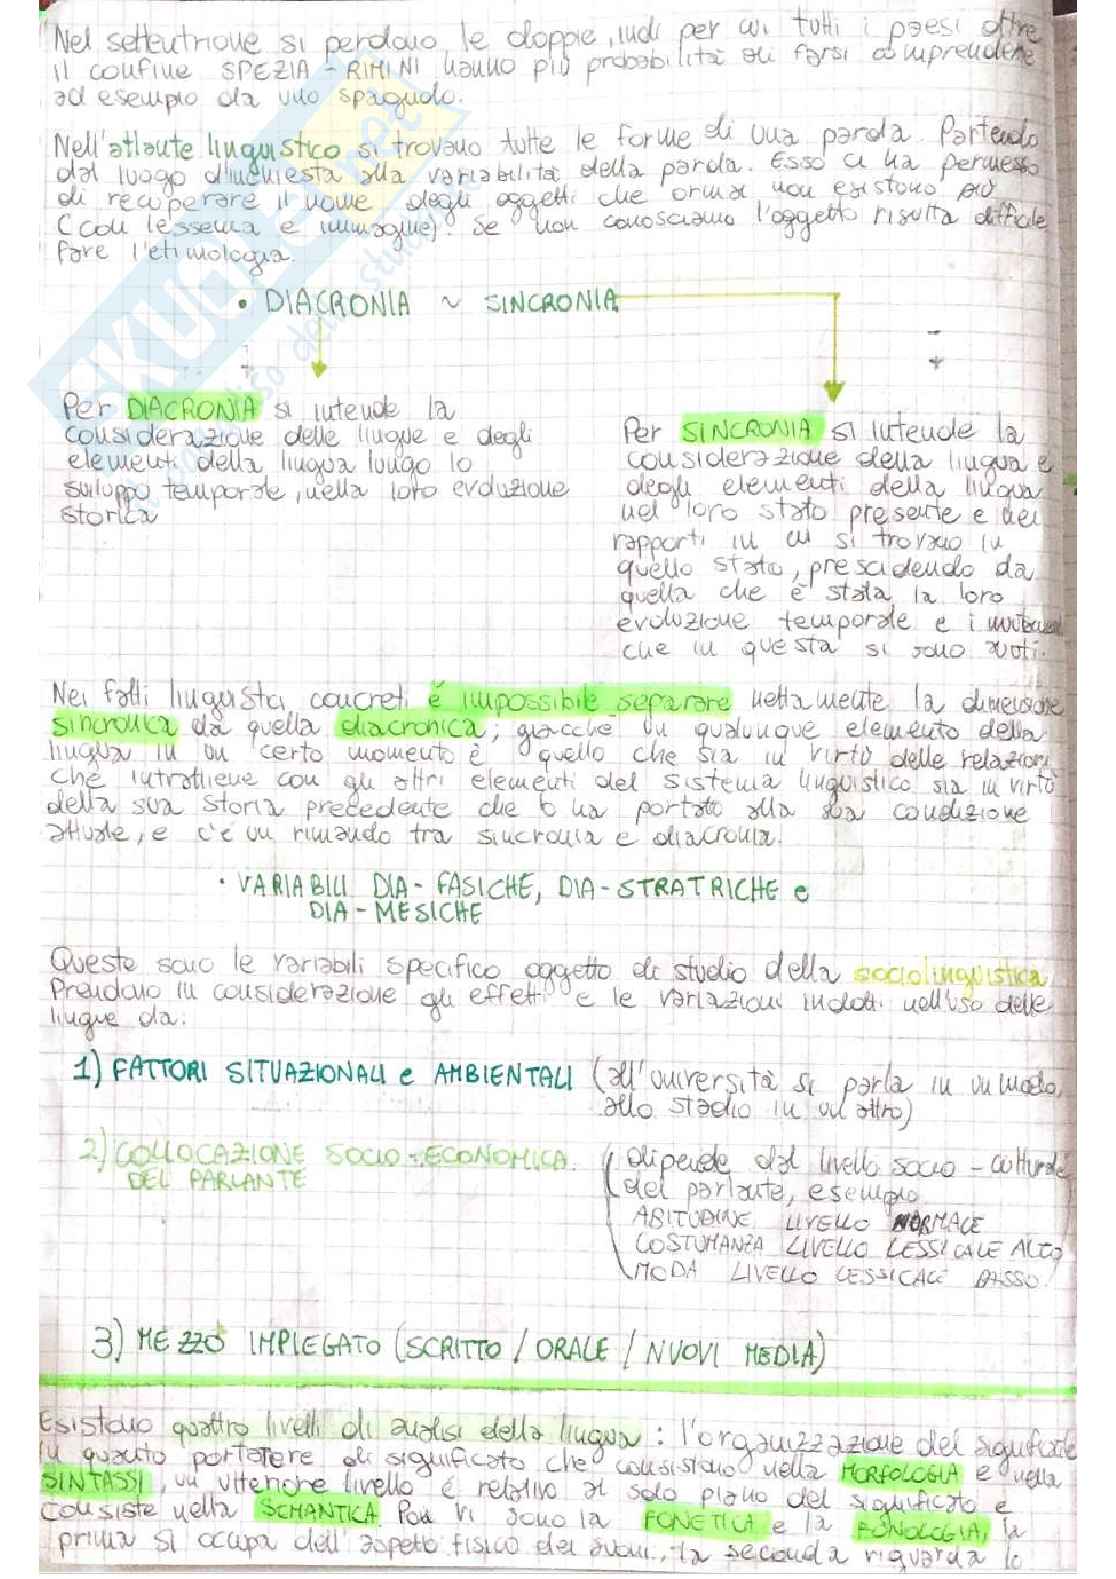 Nel settentrione si perdono le doppie, indi per cui tutti i paesi oltre
il confine SPEZIA - RIMINI hanno più probabilità di farsi comprendere
ad esempio da uno spagnolo.
Nell'atlante linguistico si trovano tutte le forme di una parola. Partendo
dal luogo d'inchiesta alla variabilità della parola. Esso ci ha permesso
di recuperare il nome degli oggetti che ormai non esistono più
(con lessema e immagine). Se non conosciamo l'oggetto risulta difficile
fare l'etimologia.
• DIACRONIA ~ SINCRONIA
Per DIACRONIA si intende la
considerazione delle lingue e degli
elementi della lingua lungo lo
sviluppo temporale, nella loro evoluzione
storica
Per SINCRONIA si intende la
considerazione della lingua e
degli elementi della lingua
nel loro stato presente e nei
rapporti in cui si trovano in
quello stato, prescidendo da
quella che è stata la loro
evoluzione temporale e i
che in questa si sono avuti.
Nei fatti linguistici concreti è impossibile separare nettamente la dimensione
sincronica da quella diacronica; giacché un qualunque elemento della
lingua in un certo momento è quello che sia in virtù delle relazioni
che intrattiene con gli altri elementi del sistema linguistico sia in virtù
della sua storia precedente che lo ha portato alla sua condizione
attuale, e c'è un rimando tra sincronia e diacronia.
• VARIABILI DIA-FASICHE, DIA-STRATRICHE e
DIA-MESICHE
Queste sono le variabili specifico oggetto di studio della sociolinguistica
Prendono in considerazione gli effetti e le variazioni indotti nell'uso delle
lingue da:
1) FATTORI SITUAZIONALI e AMBIENTALI (all'università si parla in un modo,
allo stadio in un altro)
2) COLLOCAZIONE SOCIO-ECONOMICA
DEL PARLANTE
(dipende dal livello socio-culturale
del parlante, esempio
ABITUDINE LIVELLO NORMALE
COSTUMANZA LIVELLO LESSICALE ALTO
MODA LIVELLO LESSICALE BASSO)
3) MEZZO IMPIEGATO (SCRITTO / ORALE / NUOVI MEDIA)
Esistono quattro livelli di analisi della lingua: l'organizzazione del significate
in quanto portatore di significato che consistono nella MORFOLOGIA e nella
SINTASSI, un ulteriore livello è relativo al solo piano del significato e
consiste nella SEMANTICA. Poi vi sono la FONETICA e la FONOLOGIA, la
prima si occupa dell'aspetto fisico dei suoni, la seconda riguarda lo
SKUOLA.net